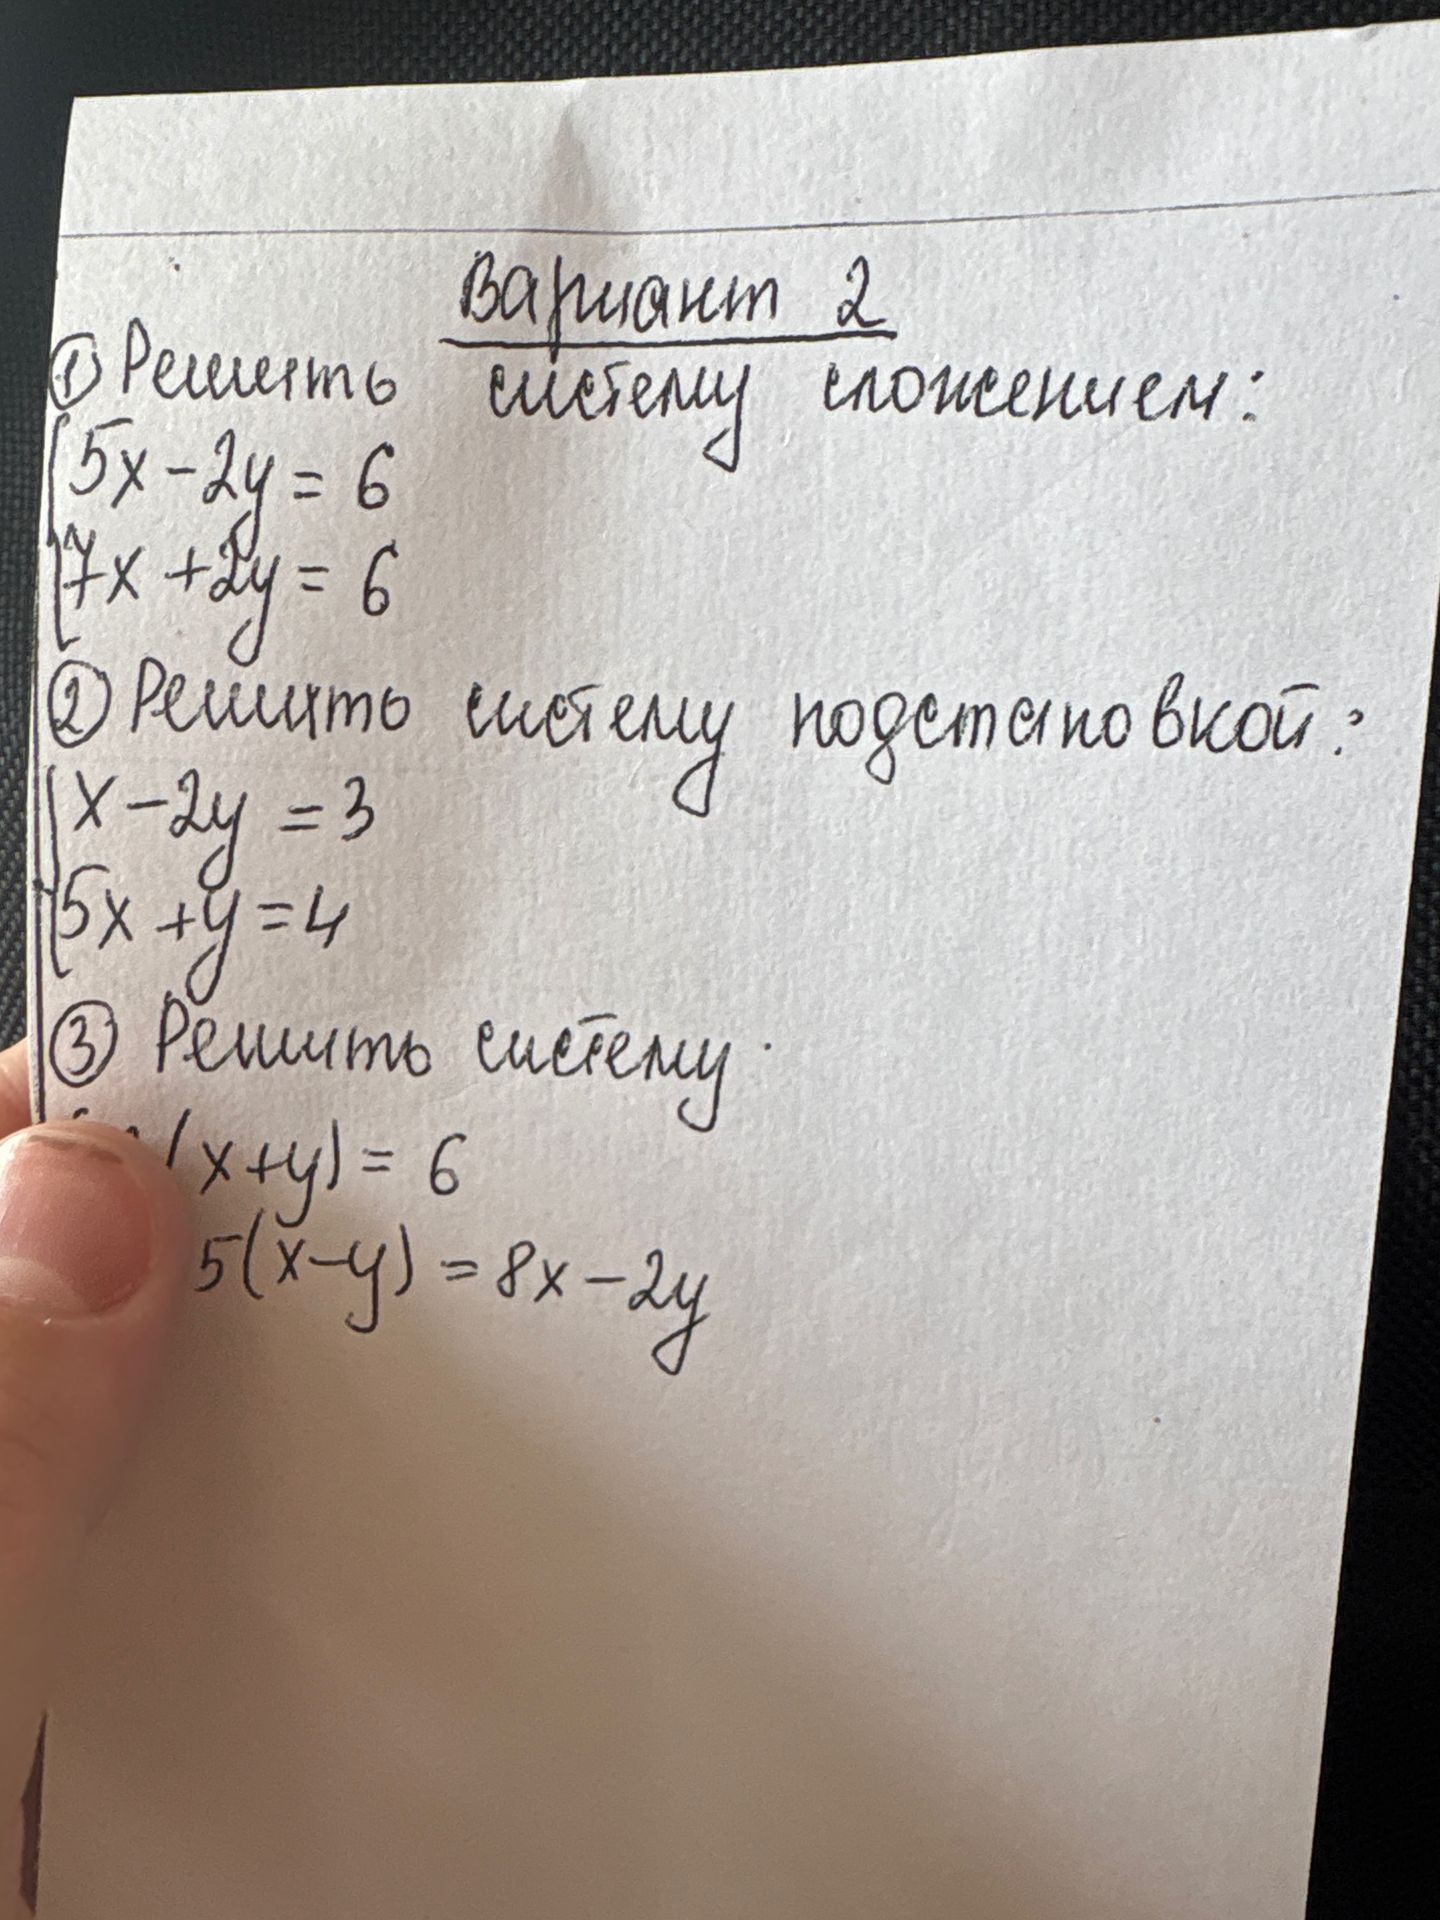 Вариант 2
① Решить систему сложением:
5x - 2y = 6
7x + 2y = 6
② Решить систему подстановкой:
x - 2y = 3
5x + y = 4
③ Решить систему
(x+y) = 6
5(x-y) = 8x - 2y